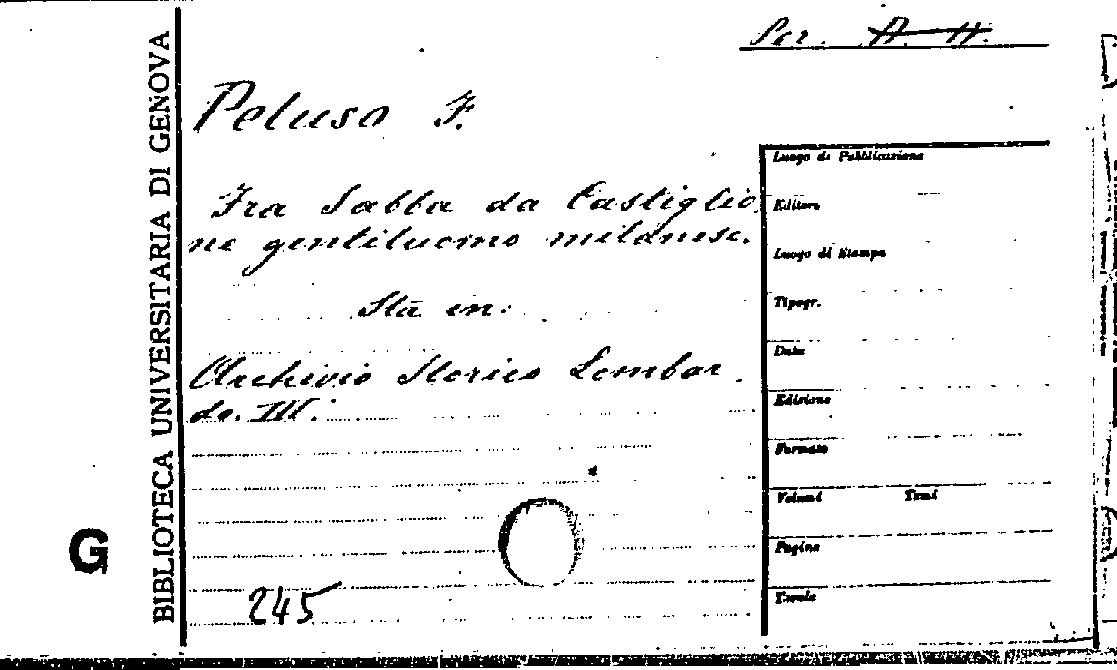 Per. A. H.
BIBLIOTECA UNIVERSITARIA DI GENOVA
G
Peluso F.
Fra Sabba da Castiglio
ne gentiluomo milanese.
Sta in:
Archivio Storico Lombar
do. III.
245
Luogo di Pubblicazione
Editore
Luogo di Stampa
Tipogr.
Data
Edizione
Formato
Volumi Tomi
Pagine
Tavole